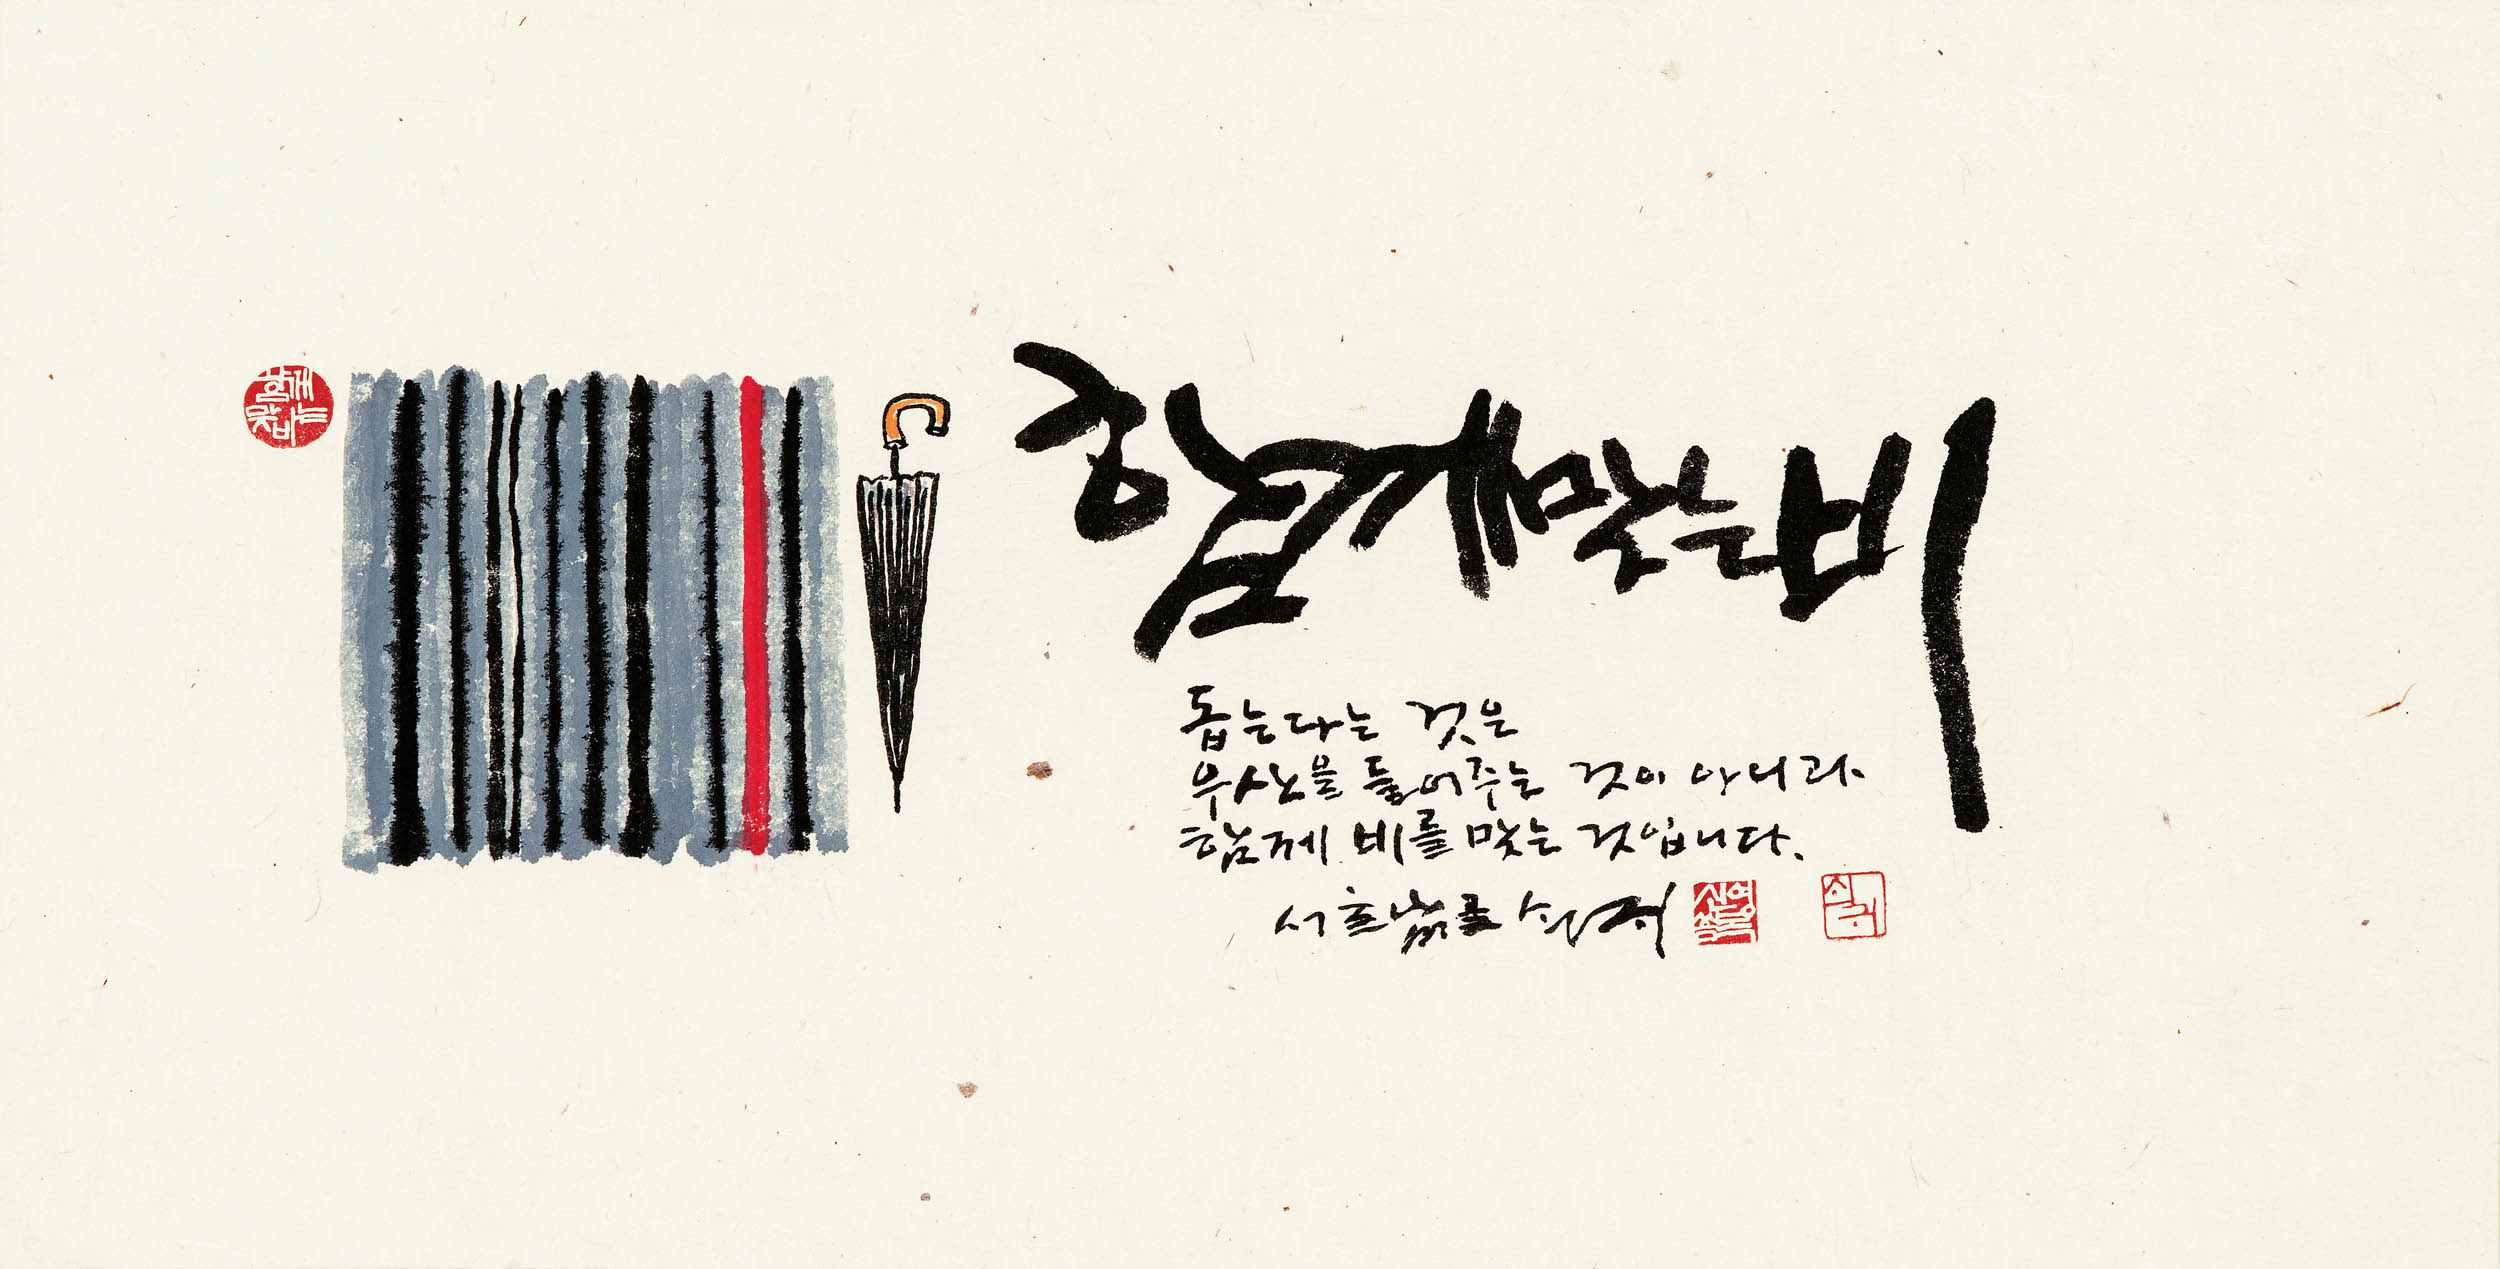 함께
맞는비
함께맞는비
돕는다는 것은
우산을 들어주는 것이 아니라
함께 비를 맞는 것입니다.
서호
신영